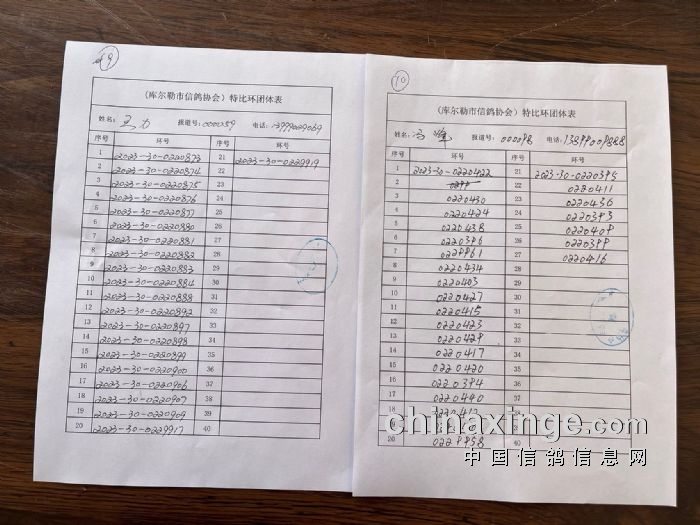 69
(库尔勒市信鸽协会) 特比环团体表
姓名: 王力 报道号: 000059 电话: 13999009069
序号 环号 序号 环号
1 2023-30-0220873 21 2023-30-0229919
2 2023-30-0220874 22
3 2023-30-0220875 23
4 2023-30-0220876 24
5 2023-30-0220877 25
6 2023-30-0220880 26
7 2023-30-0220881 27
8 2023-30-0220882 28
9 2023-30-0220883 29
10 2023-30-0220884 30
11 2023-30-0220888 31
12 2023-30-0220892 32
13 2023-30-0220897 33
14 2023-30-0220898 34
15 2023-30-0220899 35
16 2023-30-0220900 36
17 2023-30-0220906 37
18 2023-30-0220907 38
19 2023-30-0220909 39
20 2023-30-0229917 40
70
(库尔勒市信鸽协会) 特比环团体表
姓名: 报道号: 000098 电话:
序号 环号 序号 环号
1 2023-30-0220422 21 2023-30-0220395
2 22 0220411
3 0220430 23 0220436
4 0220424 24 0220393
5 0220438 25 0220408
6 0220396 26 0220399
7 27 0220416
8 0220434 28
9 0220403 29
10 0220427 30
11 0220415 31
12 0220423 32
13 0220429 33
14 0220417 34
15 0220420 35
16 0220394 36
17 0220440 37
18
20 40
chinaxinge.com
中国信鸽信息网